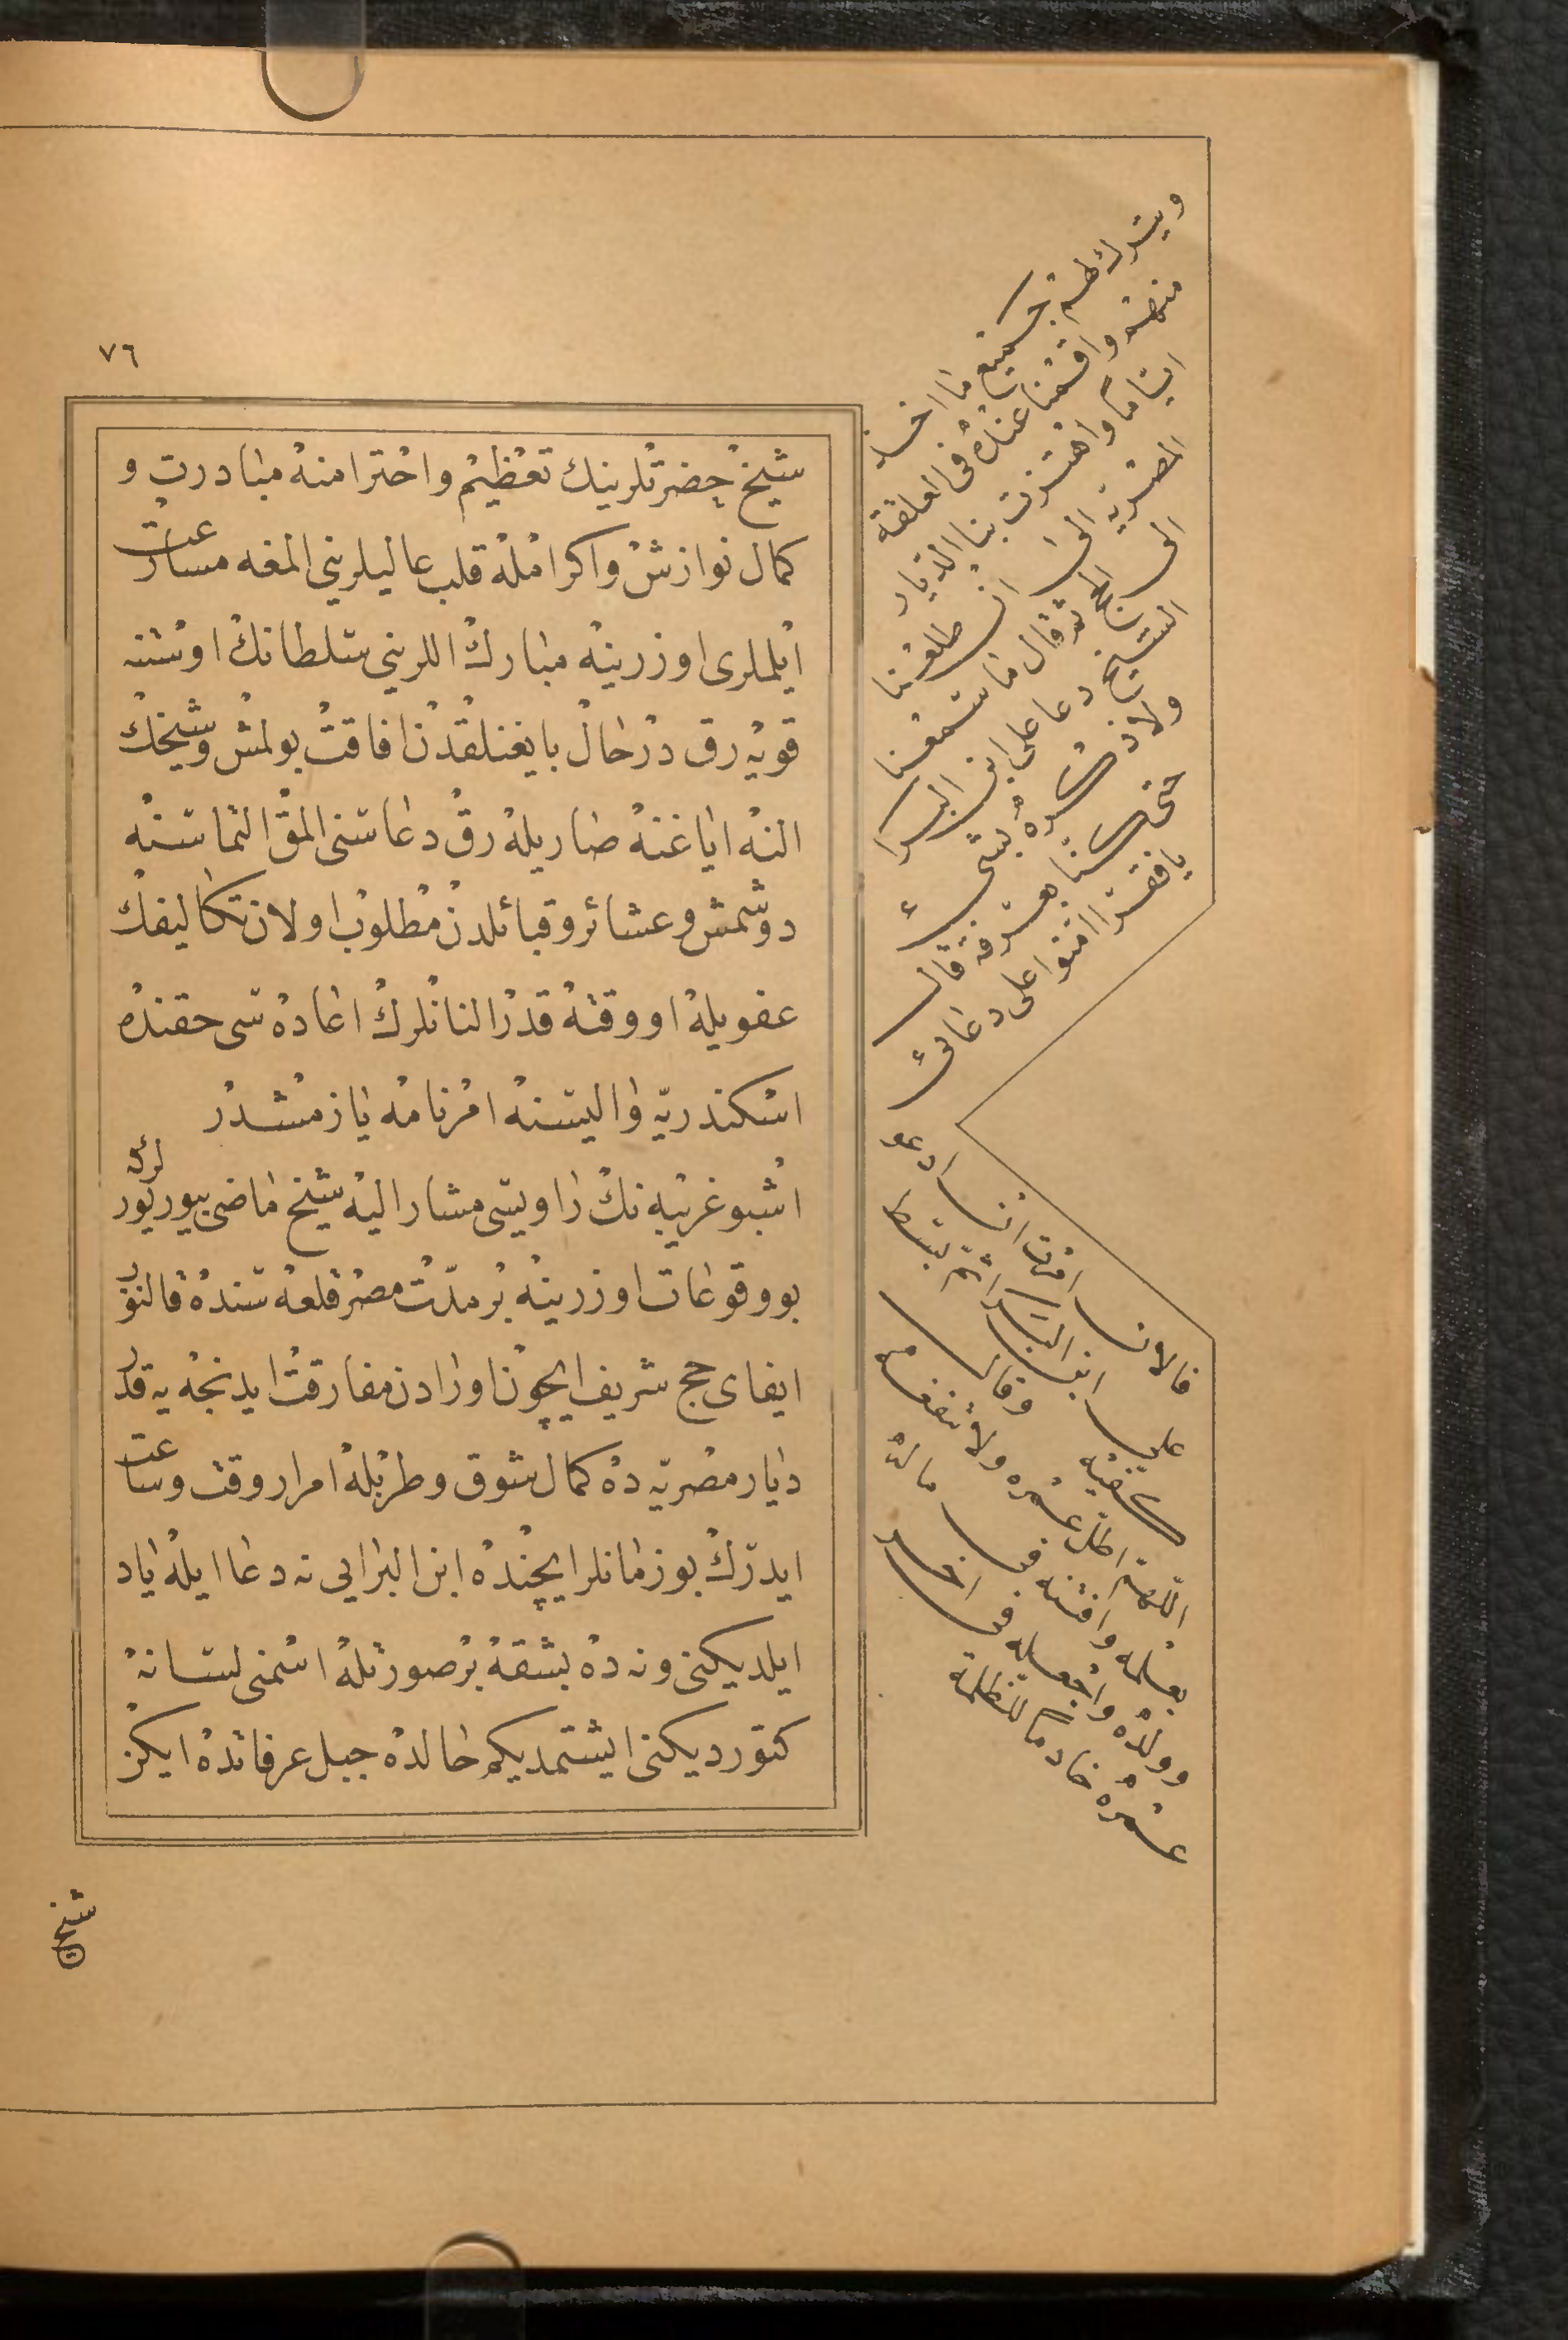 ٧٦
شيخ حضرتلرينك تعظيم واحترامنه مبادرت و
كمال نوازش واكرامله قلب عاليلرينى المغه مسارعت
ايلملرى اوزرينه مبارك اللرينى سلطانك اوستنه
قويه رق درحال بايغنلقدن افاقت بولمش وشيخك
النه اياغنه صاريله رق دعاسنى المق التماسنه
دوشمش و عشائر وقبائلدن مطلوب اولان تكاليفك
عفويله اووقته قدر النانلرك اعاده سى حقنده
اسكندريه واليسنه امرنامه يازمشدر
اشبو غريبه نك راويسى مشار اليه شيخ ماضى بيوريورلركه
بووقوعات اوزرينه بر مدت مصر قلعه سنده قالنوب
ايفاى حج شريف ايچون اورادن مفارقت ايدنجه يه قدر
ديار مصريه ده كمال شوق وطربله امرار وقت وساعت
ايدرك بوزمانلر ايچنده ابن البرايى نه دعا ايله ياد
ايلديكنى ونه ده بشقه بر صورتله اسمنى لسانه
كتورديكنى ايشتمديكم حالده جبل عرفاتده ايكن
ويترك لهم جميع ما اخذ
منهم واقمنا عنده فى القلعة
اياما واهتزت بنا الديار
المصرية الى ان طلعنا
الى الحج ثم قال ما سمعنا
الشيخ دعا على ابن البرا
ولا ذكره بشىء
حتى كنا بعرفة قال
يا فقرا امنوا على دعائى
فالان امرت ان ادعو
على ابن البرا ثم بسط
كفيه وقال
اللهم اطل عمره ولا تنفعه
بعلمه وافتنه فى ماله
وولده واجعله فى اخر
عمره خادما للظلمة
شيخ